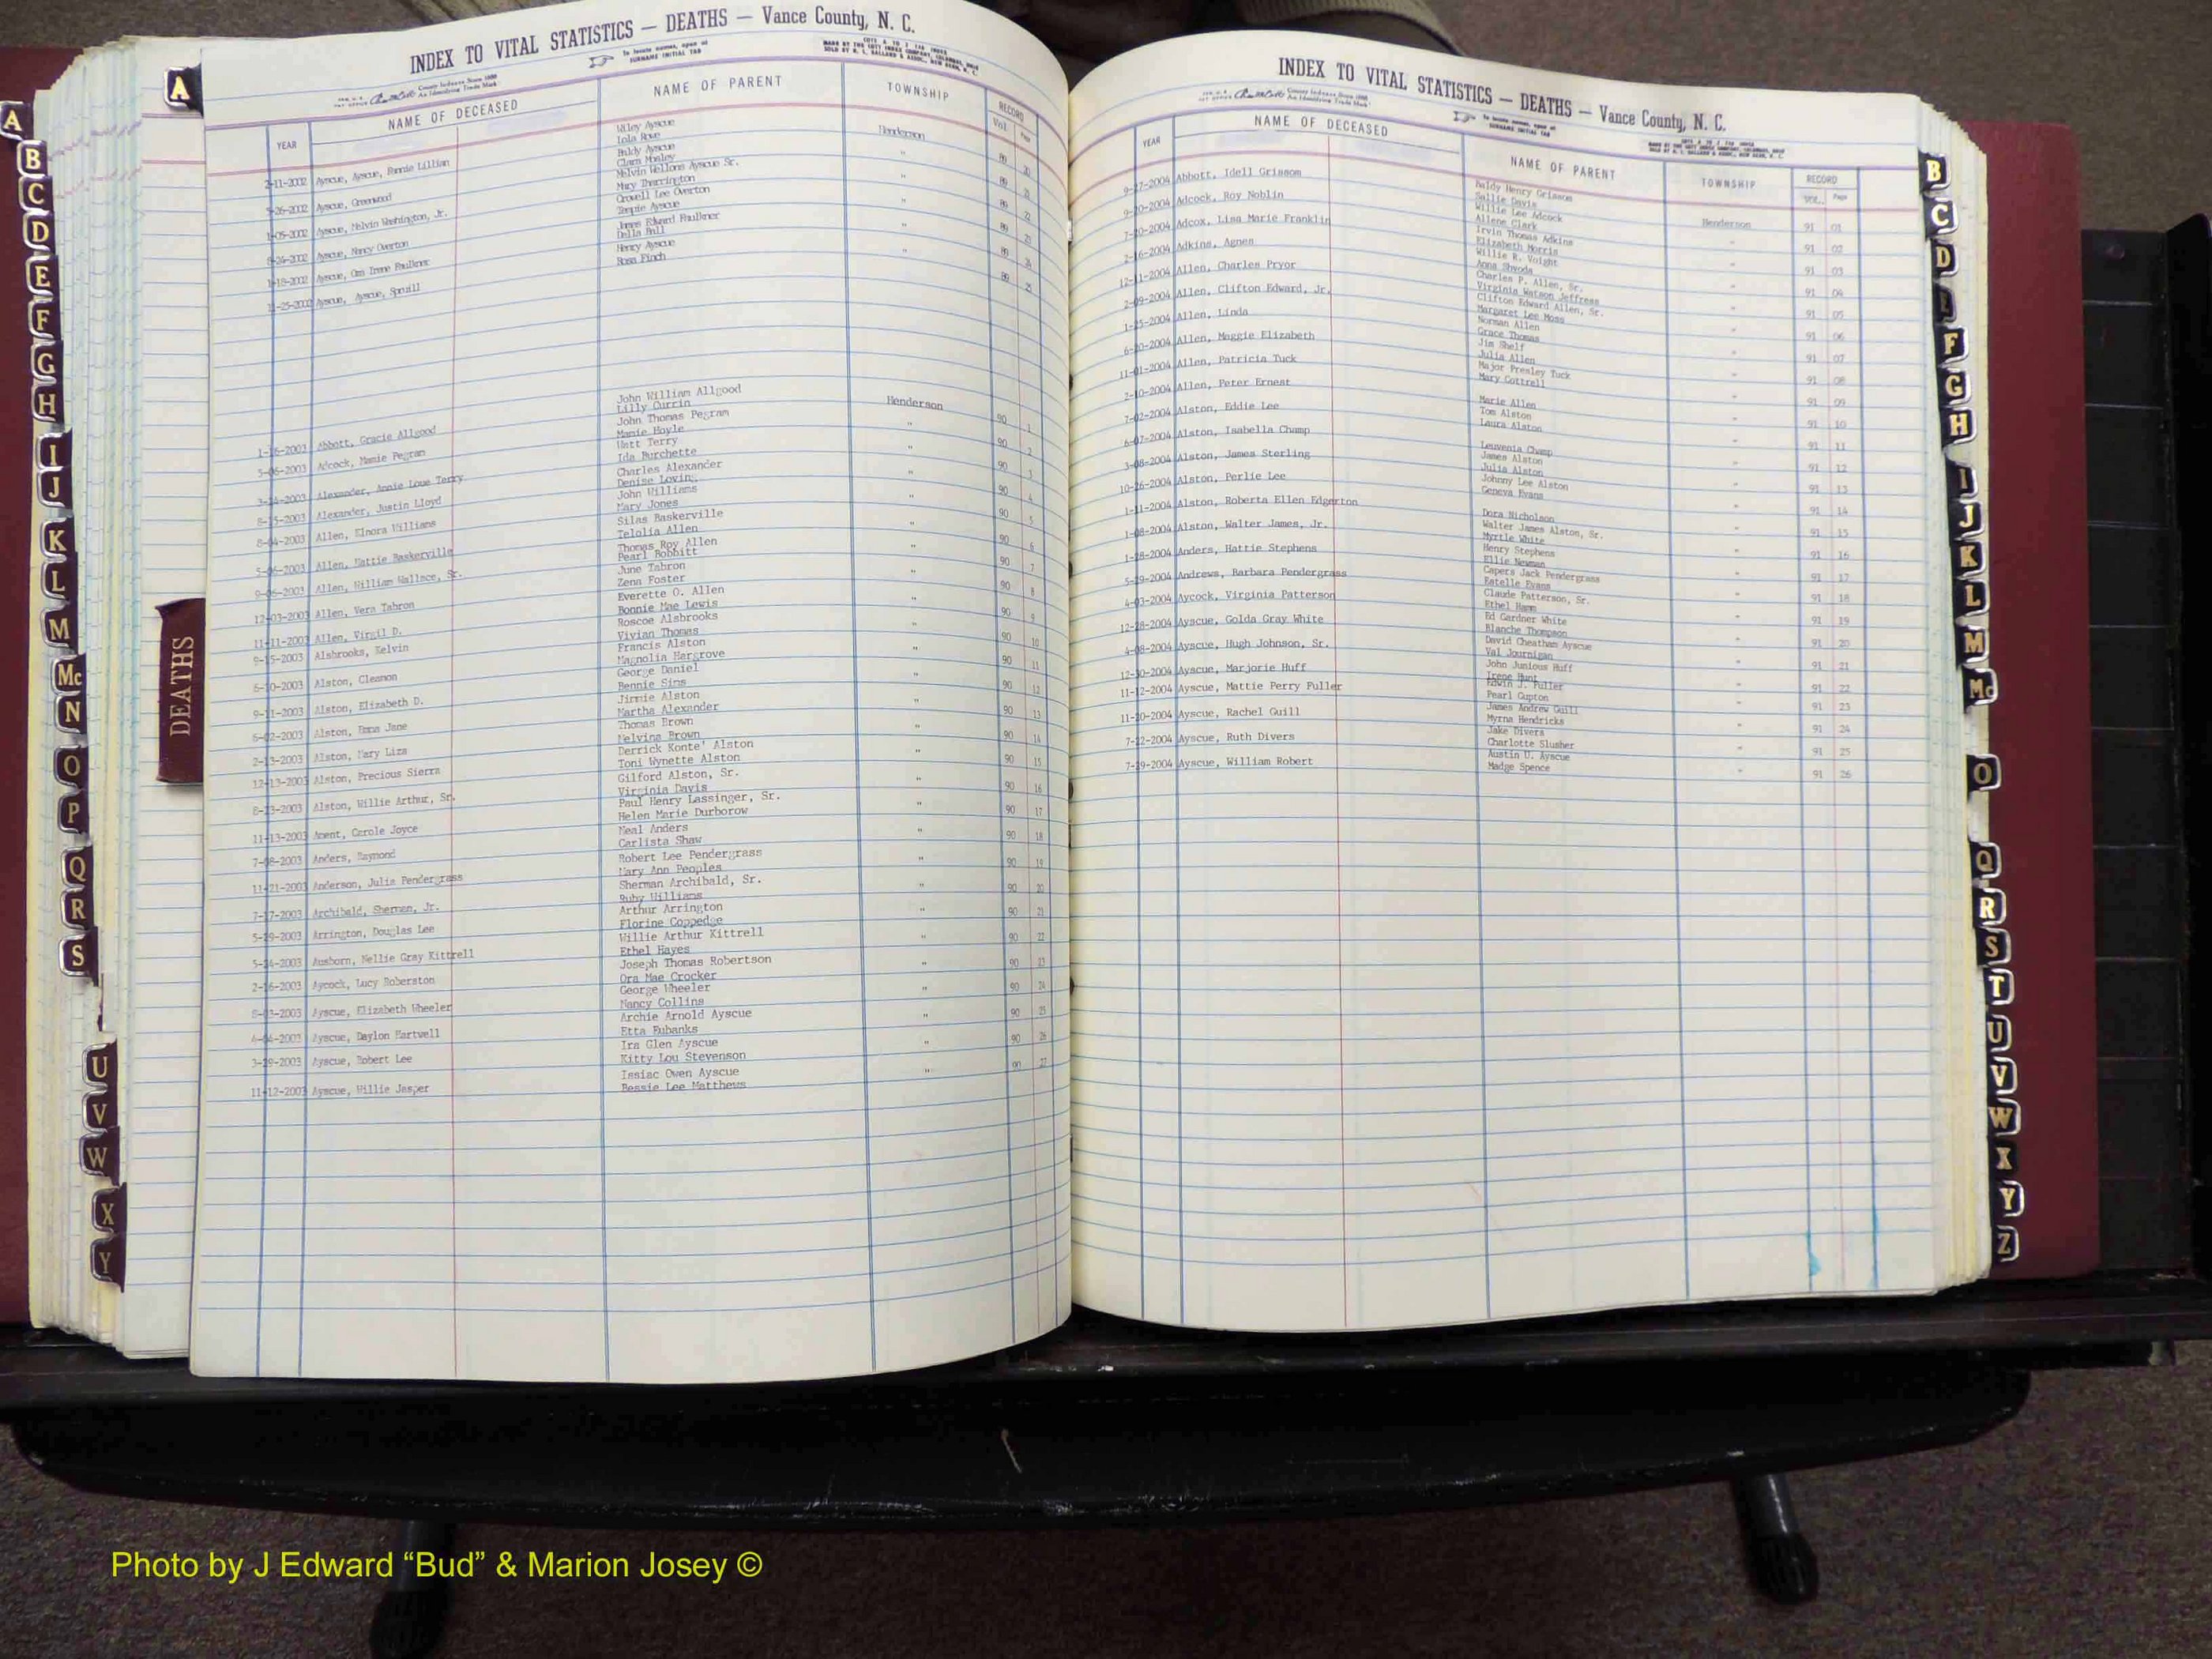 INDEX TO VITAL STATISTICS — DEATHS — Vance County, N. C.
To locate names, open at
SURNAME INITIAL TAB
County Indexes Since 1888
An Identifying Trade Mark
YEAR NAME OF DECEASED NAME OF PARENT TOWNSHIP RECORD
Vol. Page
Wiley Ayscue
2-11-2002 Ayscue, Ayscue, Fannie Lillian Lola Rowe Henderson 89 20
Baldy Ayscue
5-26-2002 Ayscue, Greenwood Clara Mosley " 89 21
Melvin Wellons Ayscue Sr.
1-05-2002 Ayscue, Melvin Washington, Jr. Mary Tharrington " 89 22
Crowell Lee Overton
8-24-2002 Ayscue, Nancy Overton Tempie Ayscue " 89 23
James Edward Faulkner
1-18-2002 Ayscue, Ona Irene Faulkner Della Ball " 89 24
Henry Ayscue
11-25-2002 Ayscue, Ayscue, Spruill Rosa Finch " 89 25
John William Allgood
1-16-2003 Abbott, Gracie Allgood Lilly Currin Henderson 90 1
John Thomas Pegram
5-06-2003 Adcock, Mamie Pegram Mamie Hoyle " 90 2
Watt Terry
3-24-2003 Alexander, Annie Loue Terry Ida Burchette " 90 3
Charles Alexander
8-15-2003 Alexander, Justin Lloyd Denise Loving " 90 4
John Williams
8-04-2003 Allen, Elnora Williams Mary Jones " 90 5
Silas Baskerville
5-06-2003 Allen, Hattie Baskerville Telolia Allen " 90 6
Thomas Roy Allen
9-06-2003 Allen, William Wallace, Sr. Pearl Bobbitt " 90 7
June Tabron
12-03-2003 Allen, Vera Tabron Zena Foster " 90 8
Everette O. Allen
11-11-2003 Allen, Virgil D. Bonnie Mae Lewis " 90 9
Roscoe Alsbrooks
9-15-2003 Alsbrooks, Kelvin Vivian Thomas " 90 10
Francis Alston
6-10-2003 Alston, Cleamon Magnolia Hargrove " 90 11
George Daniel
9-11-2003 Alston, Elizabeth D. Bennie Sims " 90 12
Jimmie Alston
6-02-2003 Alston, Emma Jane Martha Alexander " 90 13
Thomas Brown
2-13-2003 Alston, Mary Liza Melvina Brown " 90 14
Derrick Konte' Alston
12-13-2003 Alston, Precious Sierra Toni Wynette Alston " 90 15
Gilford Alston, Sr.
8-23-2003 Alston, Willie Arthur, Sr. Virginia Davis " 90 16
Paul Henry Lassinger, Sr.
11-13-2003 Ament, Carole Joyce Helen Marie Durborow " 90 17
Neal Anders
7-08-2003 Anders, Raymond Carlista Shaw " 90 18
Robert Lee Pendergrass
11-21-2003 Anderson, Julia Pendergrass Mary Ann Peoples " 90 19
Sherman Archibald, Sr.
7-17-2003 Archibald, Sherman, Jr. Ruby Williams " 90 20
Arthur Arrington
5-29-2003 Arrington, Douglas Lee Florine Coppedge " 90 21
Willie Arthur Kittrell
5-24-2003 Ausborn, Nellie Gray Kittrell Ethel Hayes " 90 22
Joseph Thomas Robertson
2-16-2003 Aycock, Lucy Roberston Ora Mae Crocker " 90 23
George Wheeler
8-03-2003 Ayscue, Elizabeth Wheeler Nancy Collins " 90 24
Archie Arnold Ayscue
4-04-2003 Ayscue, Daylon Hartwell Etta Eubanks " 90 25
Ira Glen Ayscue
3-29-2003 Ayscue, Robert Lee Kitty Lou Stevenson " 90 26
Issiac Owen Ayscue
11-12-2003 Ayscue, Willie Jasper Bessie Lee Matthews " 90 27
INDEX TO VITAL STATISTICS — DEATHS — Vance County, N. C.
To locate names, open at
SURNAME INITIAL TAB
County Indexes Since 1888
An Identifying Trade Mark
YEAR NAME OF DECEASED NAME OF PARENT TOWNSHIP RECORD
VOL. Page
Baldy Henry Grissom
9-27-2004 Abbott, Idell Grissom Sallie Davis Henderson 91 01
Willie Lee Adcock
9-20-2004 Adcock, Roy Noblin Allene Clark " 91 02
Irvin Thomas Adkins
7-20-2004 Adcox, Lisa Marie Franklin Elizabeth Morris " 91 03
Willie R. Voight
2-16-2004 Adkins, Agnes Anna Shvoda " 91 04
Charles P. Allen, Sr.
12-11-2004 Allen, Charles Pryor Virginia Watson Jeffress " 91 05
Clifton Edward Allen, Sr.
2-09-2004 Allen, Clifton Edward, Jr. Margaret Lee Moss " 91 06
Norman Allen
1-25-2004 Allen, Linda Grace Thomas " 91 07
Jim Shelf
6-20-2004 Allen, Maggie Elizabeth Julia Allen " 91 08
Major Presley Tuck
11-01-2004 Allen, Patricia Tuck Mary Cottrell " 91 09
2-10-2004 Allen, Peter Ernest Marie Allen " 91 10
Tom Alston
7-02-2004 Alston, Eddie Lee Laura Alston " 91 11
6-07-2004 Alston, Isabella Champ Leuvenia Champ " 91 12
James Alston
3-08-2004 Alston, James Sterling Julia Alston " 91 13
Johnny Lee Alston
10-26-2004 Alston, Perlie Lee Geneva Evans " 91 14
1-11-2004 Alston, Roberta Ellen Edgerton Dora Nicholson " 91 15
Walter James Alston, Sr.
1-08-2004 Alston, Walter James, Jr. Myrtle White " 91 16
Henry Stephens
1-28-2004 Anders, Hattie Stephens Ellie Newman " 91 17
Capers Jack Pendergrass
5-29-2004 Andrews, Barbara Pendergrass Estelle Evans " 91 18
Claude Patterson, Sr.
4-03-2004 Aycock, Virginia Patterson Ethel Hamm " 91 19
Ed Gardner White
12-28-2004 Ayscue, Golda Gray White Blanche Thompson " 91 20
David Cheatham Ayscue
4-08-2004 Ayscue, Hugh Johnson, Sr. Val Journigan " 91 21
John Junious Huff
12-30-2004 Ayscue, Marjorie Huff Irene Hunt " 91 22
Edwin J. Fuller
11-12-2004 Ayscue, Mattie Perry Fuller Pearl Cupton " 91 23
James Andrew Guill
11-20-2004 Ayscue, Rachel Guill Myrna Hendricks " 91 24
Jake Divers
7-22-2004 Ayscue, Ruth Divers Charlotte Slusher " 91 25
Austin U. Ayscue
7-29-2004 Ayscue, William Robert Madge Spence " 91 26
A
A
B
C
D
E
F
G
H
I
J
K
L
M
Mc
N
O
P
Q
R
S
U
V
W
X
Y
DEATHS
B
C
D
E
F
G
H
I
J
K
L
M
Mc
O
Q
R
S
T
U
V
W
X
Y
Z
Photo by J Edward “Bud” & Marion Josey ©